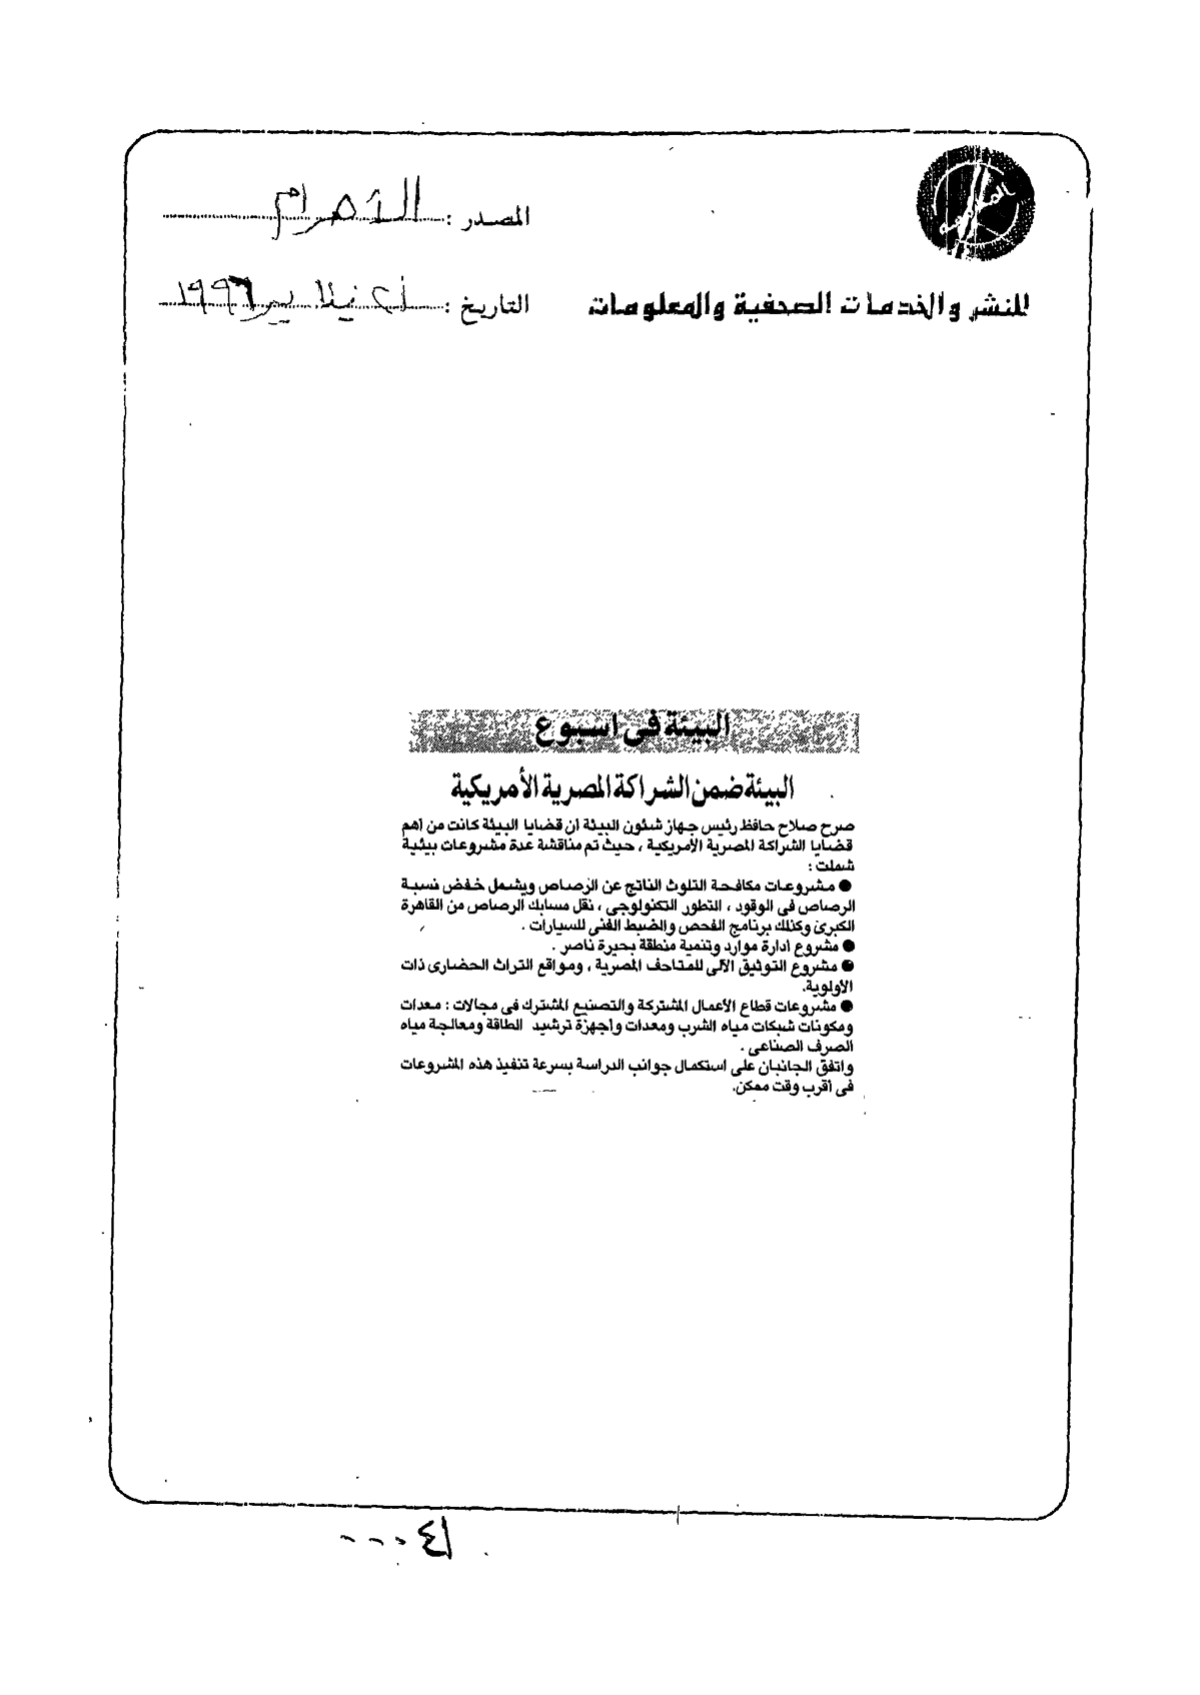 المصدر : الأهرام
للنشر والخدمات الصحفية والمعلومات
التاريخ : ١٩٩٦
البيئة فى اسبوع
البيئة ضمن الشراكة المصرية الأمريكية
صرح صلاح حافظ رئيس جهاز شئون البيئة ان قضايا البيئة كانت من اهم
قضايا الشراكة المصرية الأمريكية ، حيث تم مناقشة عدة مشروعات بيئية
شملت :
● مشروعات مكافحة التلوث الناتج عن الرصاص ويشمل خفض نسبة
الرصاص فى الوقود ، التطور التكنولوجى ، نقل مسابك الرصاص من القاهرة
الكبرى وكذلك برنامج الفحص والضبط الفنى للسيارات .
● مشروع ادارة موارد وتنمية منطقة بحيرة ناصر .
● مشروع التوثيق الآلى للمتاحف المصرية ، ومواقع التراث الحضارى ذات
الأولوية.
● مشروعات قطاع الأعمال المشتركة والتصنيع المشترك فى مجالات : معدات
ومكونات شبكات مياه الشرب ومعدات وأجهزة ترشيد الطاقة ومعالجة مياه
الصرف الصناعى .
واتفق الجانبان على استكمال جوانب الدراسة بسرعة تنفيذ هذه المشروعات
فى أقرب وقت ممكن.